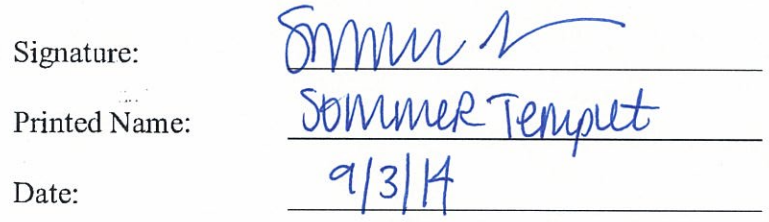 Signature: Sommer T
Printed Name: Sommer Templet
Date: 9/3/14